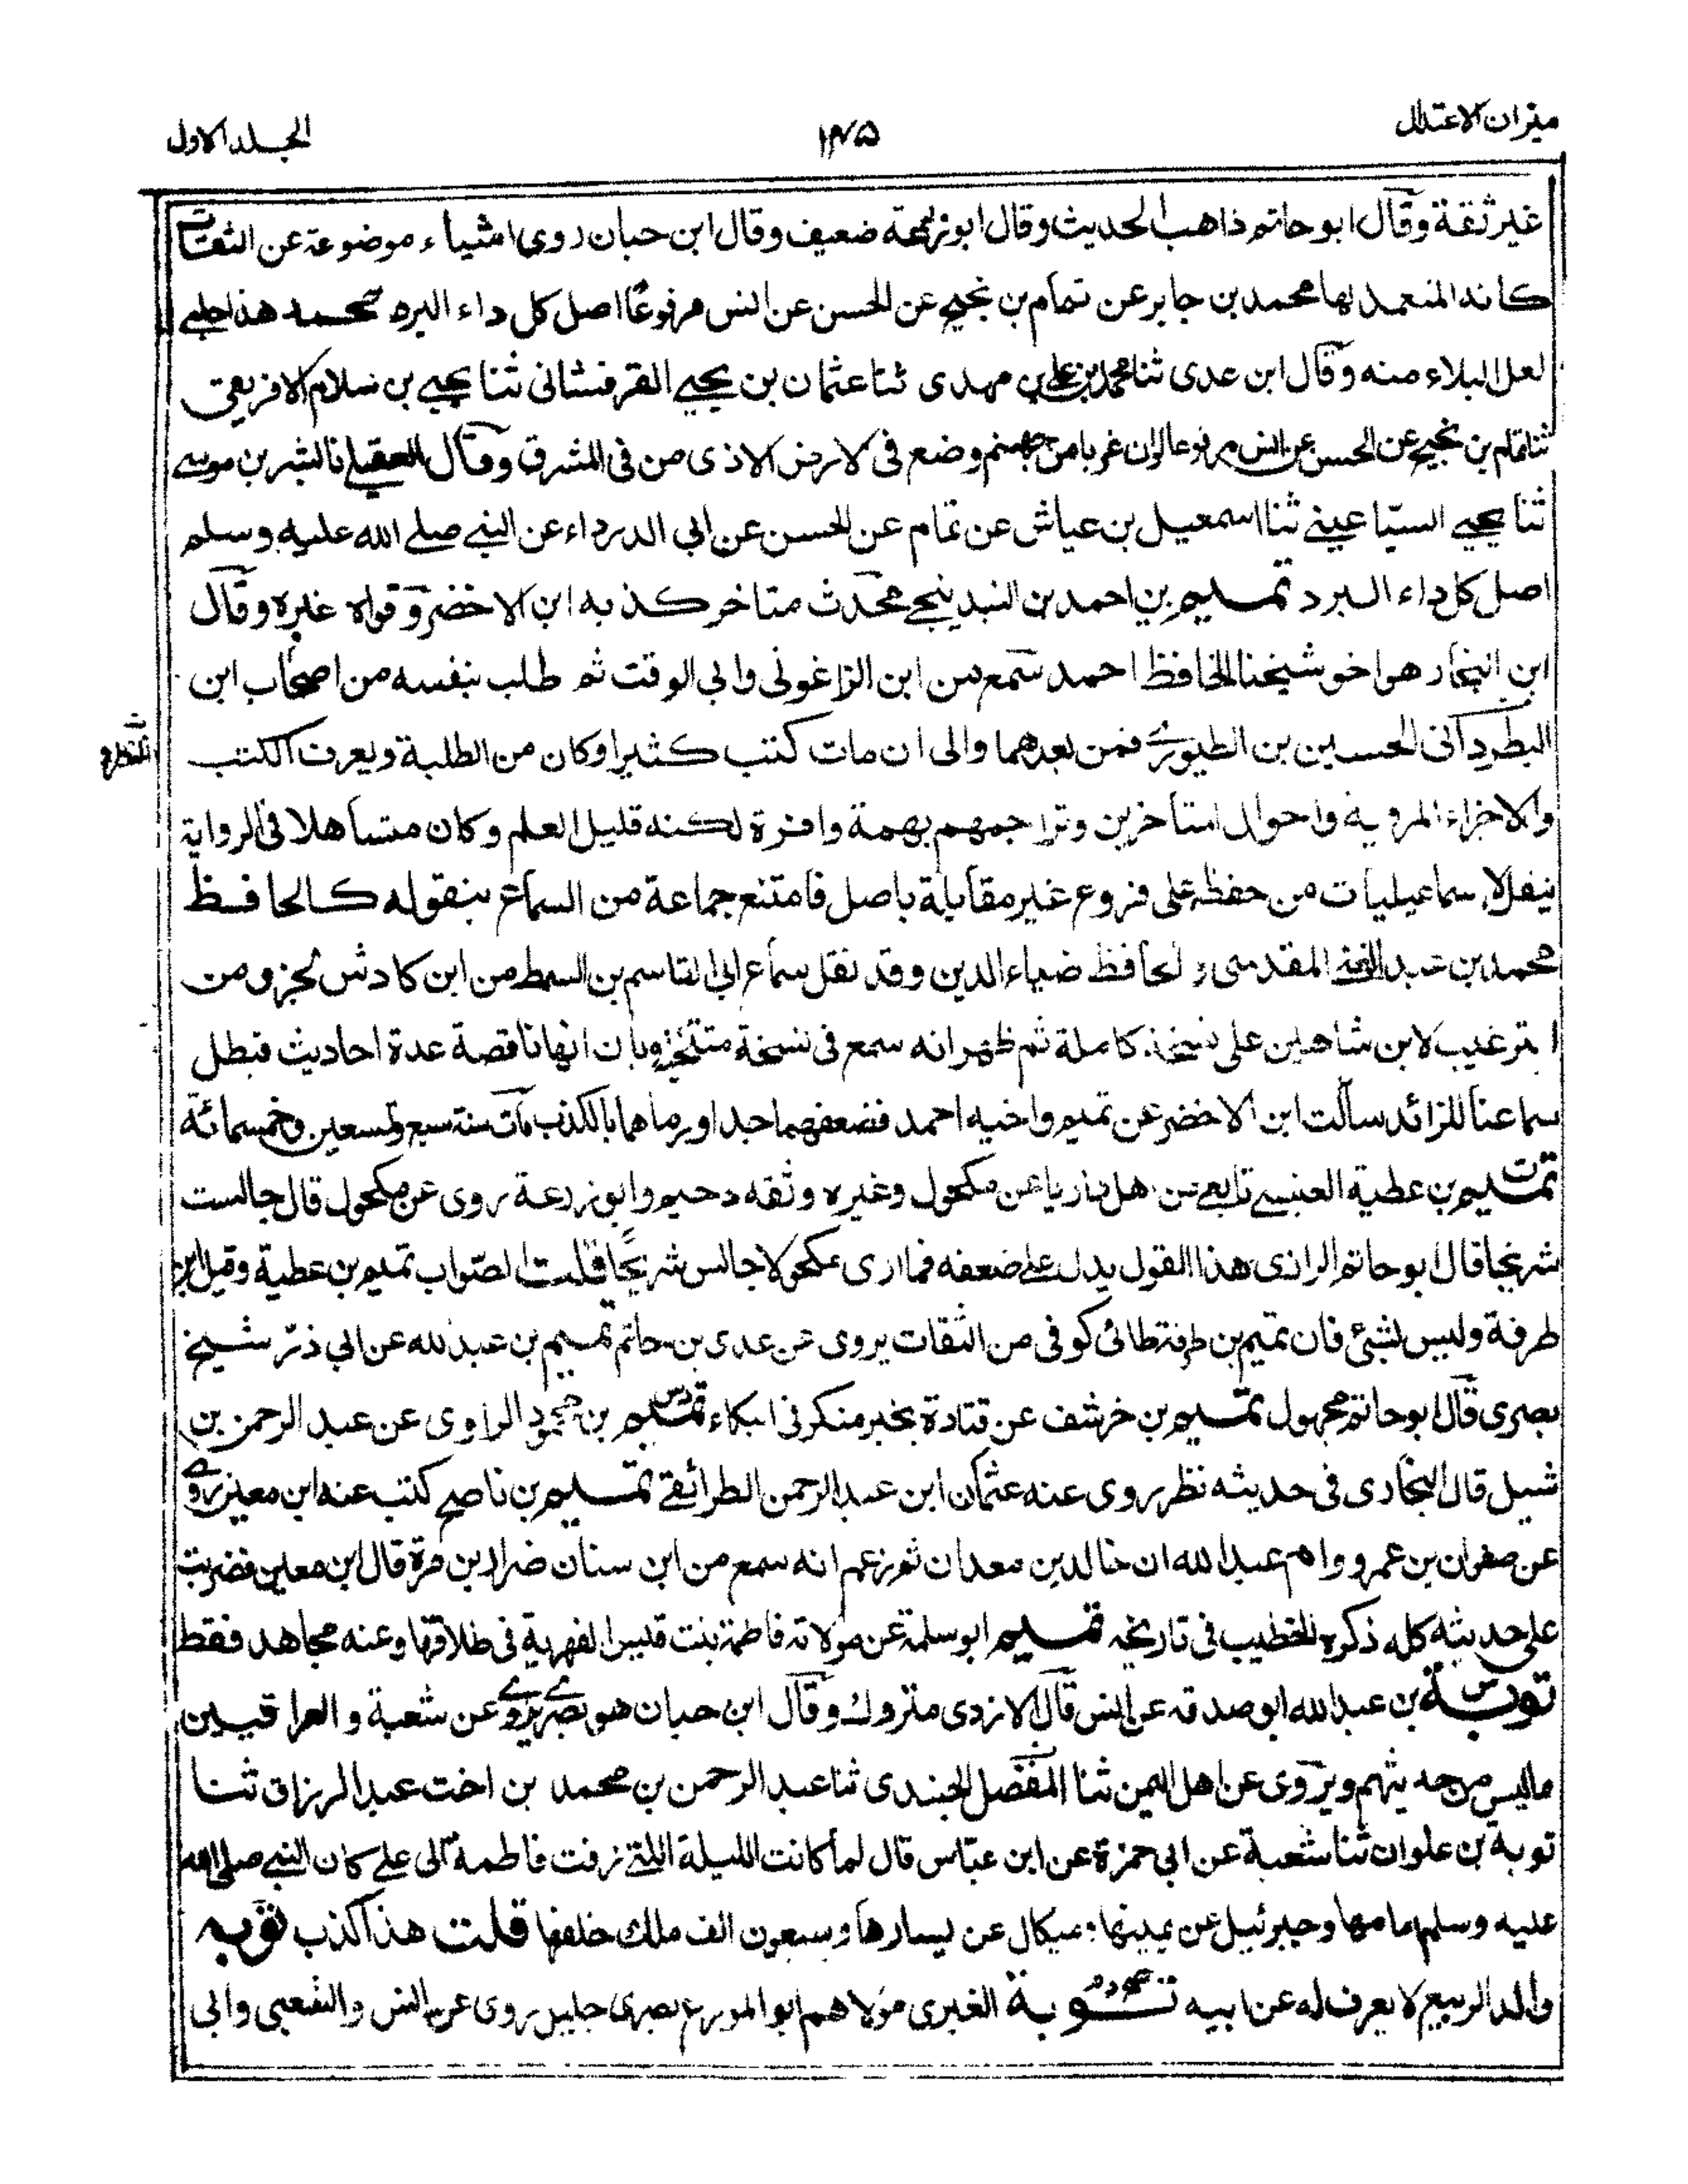 ميزان الاعتدال
١٤٥
المجلد الاول
غير ثقة وقال ابو حاتم ذاهب الحديث وقال ابو زرعة ضعيف وقال ابن حبان روى اشياء موضوعة عن الثقات
كانه المتعمد لها محمد بن جابر عن تمام بن نجيح عن الحسن عن انس مرفوعًا اصل كل داء البرد محمد هذا حلبي
لعل البلاء منه وقال ابن عدى ثنا محمد بن علي بن مهدى ثنا عثمان بن يحيى القرقسانى ثنا يحيى بن سلام الافريقى
ثنا تمام بن نجيح عن الحسن عن انس مرفوعا لو ان غربا من جهنم وضع فى الارض لاذى من فى المشرق وقال العقيلي نا بشر بن موسى
ثنا يحيى السيلحينى ثنا اسمعيل بن عياش عن تمام عن الحسن عن ابى الدرداء عن النبي صلى الله عليه وسلم
اصل كل داء البرد تميم بن احمد بن البندنيجي محدث متاخر كذبه ابن الاخضر وقواه غيره وقال
ابن النجار هو اخو شيخنا الحافظ احمد سمع من ابن الزاغونى وابى الوقت ثم طلب بنفسه من اصحاب ابن
البطر وابى الحسين بن الطيورى فمن بعدهما والى ان مات كتب كثيرا وكان من الطلبة ويعرف الكتب
والاجزاء المروية واحوال المتاخرين وتراجمهم بهمة وافرة لكنه قليل العلم وكان متساهلا فى الرواية
ينقل الاسماعيليات من حفظه على فروع غير مقابلة باصل فامتنع جماعة من السماع بنقوله كالحافظ
محمد بن عبد الغنى المقدسى والحافظ ضياء الدين وقد نقل سماع ابى القاسم بن السمط من ابن كادش لجزو من
الترغيب لابن شاهين على نسخة كاملة ثم ظهر انه سمع فى نسخة وبان انها ناقصة عدة احاديث فبطل
سماعنا للزائد سالت ابن الاخضر عن تميم واخيه احمد فضعفهما جدا ورماهما بالكذب مات سنة سبع وتسعين وخمسمائة
تميم بن عطية العنسى تابعى من اهل داريا عن مكحول وغيره وثقه دحيم وابو زرعة روى عن مكحول قال جالست
شريحا قال ابو حاتم الرازى هذا القول يدل على ضعفه فما ارى مكحولا جالس شريحًا قلت الصواب تميم بن عطية وقيل ابن
طرفة وليس بشئ فان تميم بن طرفة طائى كوفى من الثقات يروى عن عدى بن حاتم تميم بن عبد الله عن ابى ذر شيخ
بصرى قال ابو حاتم مجهول تميم بن خرشف عن قتادة بخبر منكر فى البكاء تميم بن محمود الراوى عن عبد الرحمن بن
شبل قال البخارى فى حديثه نظر روى عنه عثمان ابن عبد الرحمن الطرائفي تميم بن ناصح كتب عنه ابن معين روى
عن صفوان بن عمرو وام عبد الله ان خالد بن معدان ثم زعم انه سمع من ابن سنان ضرار بن مرة قال ابن معين فضربت
على حديثه كله ذكره الخطيب فى تاريخه تميم ابو سلمة عن مولاته فاطمة بنت قيس الفهرية فى طلاقها وعنه مجاهد فقط
توبة بن عبد الله ابو صدقة عن انس قال الازدى متروك وقال ابن حبان هو بصرى يروى عن شعبة و العراقيين
ما ليس من حديثهم ويروى عن اهل اليمن ثنا المفضل الجندى ثنا عبد الرحمن بن محمد بن اخت عبد الرزاق ثنا
توبة بن علوان ثنا شعبة عن ابى حمزة عن ابن عباس قال لما كانت الليلة التى زفت فاطمة الى على كان النبي صلى الله
عليه وسلم امامها وجبرئيل عن يمينها وميكال عن يسارها وسبعون الف ملك خلفها قلت هذا كذب توبه
والد الربيع لا يعرف له عن ابيه توبة العنبرى مولاهم ابو المورع بصرى جليل روى عن انس والشعبي وابى